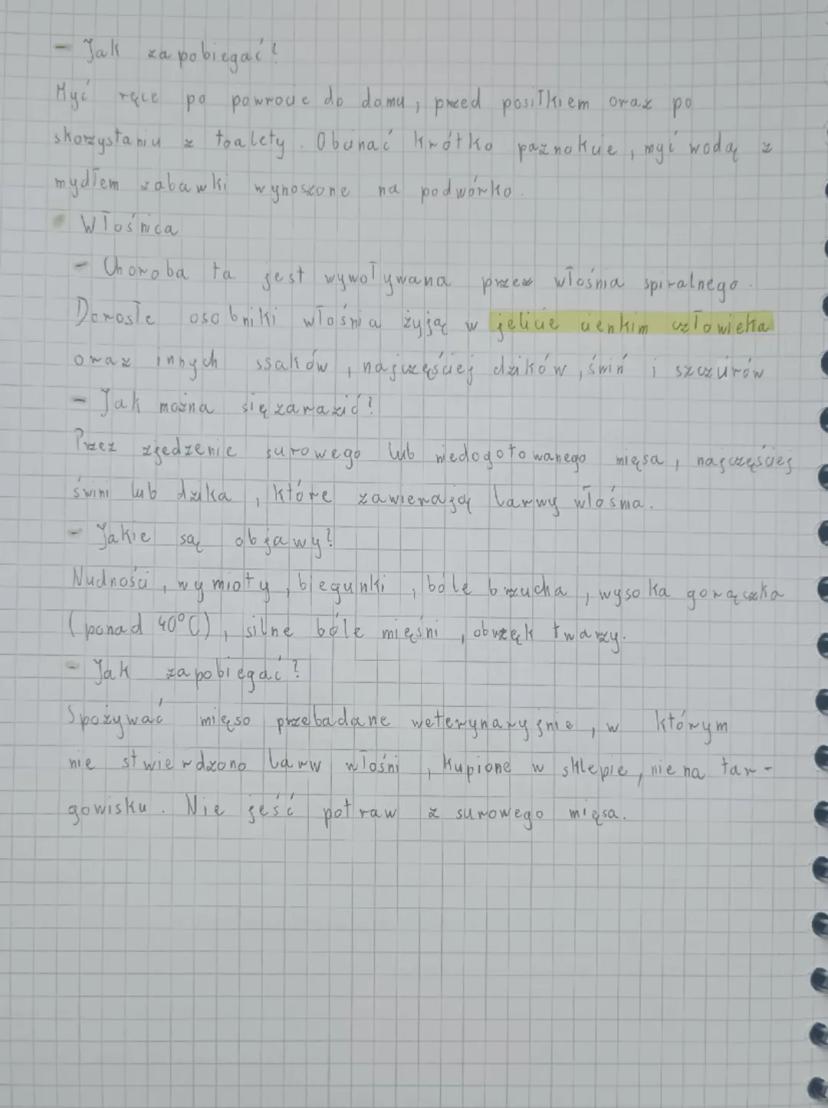 - Jak zapobiegać?
Myć ręce po powrocie do domu, przed posiłkiem oraz po
skorzystaniu z toalety. Obcinać krótko paznokcie, myć wodą z
mydłem zabawki wynoszone na podwórko.
• Włośnica
- Choroba ta jest wywoływana przez włośnia spiralnego.
Dorosłe osobniki włośnia żyją w jelicie cienkim człowieka
oraz innych ssaków, najczęściej dzików, świń i szczurów
- Jak można się zarazić?
Przez zjedzenie surowego lub niedogotowanego mięsa, najczęściej
świni lub dzika, które zawierają larwy włośnia.
- Jakie są objawy?
Nudności, wymioty, biegunki, bóle brzucha, wysoka gorączka
(ponad 40°C), silne bóle mięśni, obrzęk twarzy.
- Jak zapobiegać?
Spożywać mięso przebadane weterynaryjnie, w którym
nie stwierdzono larw włośni, kupione w sklepie, nie na tar-
gowisku. Nie jeść potraw z surowego mięsa.